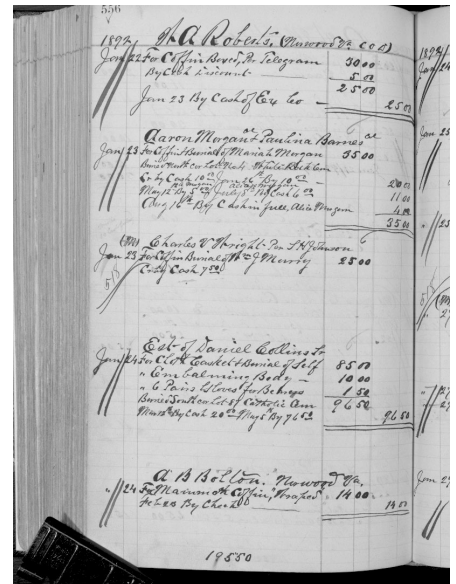 556
1892 W A Roberts, (Norwood Va C O D)
Jan 22 For Coffin Boxed, Per Telegram 30 00
By Cash Discount — 5 00
25 00
Jan 23 By Cash of Ex Co — 25 00
Aaron Morgan or Paulina Barnes
Jan 23 For Coffin & Burial of Mariah Morgan 35 00
Buried White Rock Cem
Cr By Cash 10 00 Jan 26 By 10 00 — 20 00
May 12 By 5 00 By Cash 6 00 11 00
Aug 1 By Cash in full, Alice Morgan 4 00
35 00
Charles V Wright Per Johnson
Jan 23 For Coffin Burial of J Murry 25 00
Cr By Cash 7 50
518
Est of Daniel Collins Sr
Jan 24 For Cloth Casket & Burial of Self 85 00
" Embalming Body — 10 00
" 6 Pairs Gloves for Bearers 1 50
Buried South Lot Catholic Cem 96 50
Mar By Cash 20 00 May By 76 50 96 50
A B Bolton. "Norwood Va.
" 24 For Mammoth Coffin, Wraped 14 00
Feb 23 By Check 14 00
195 50